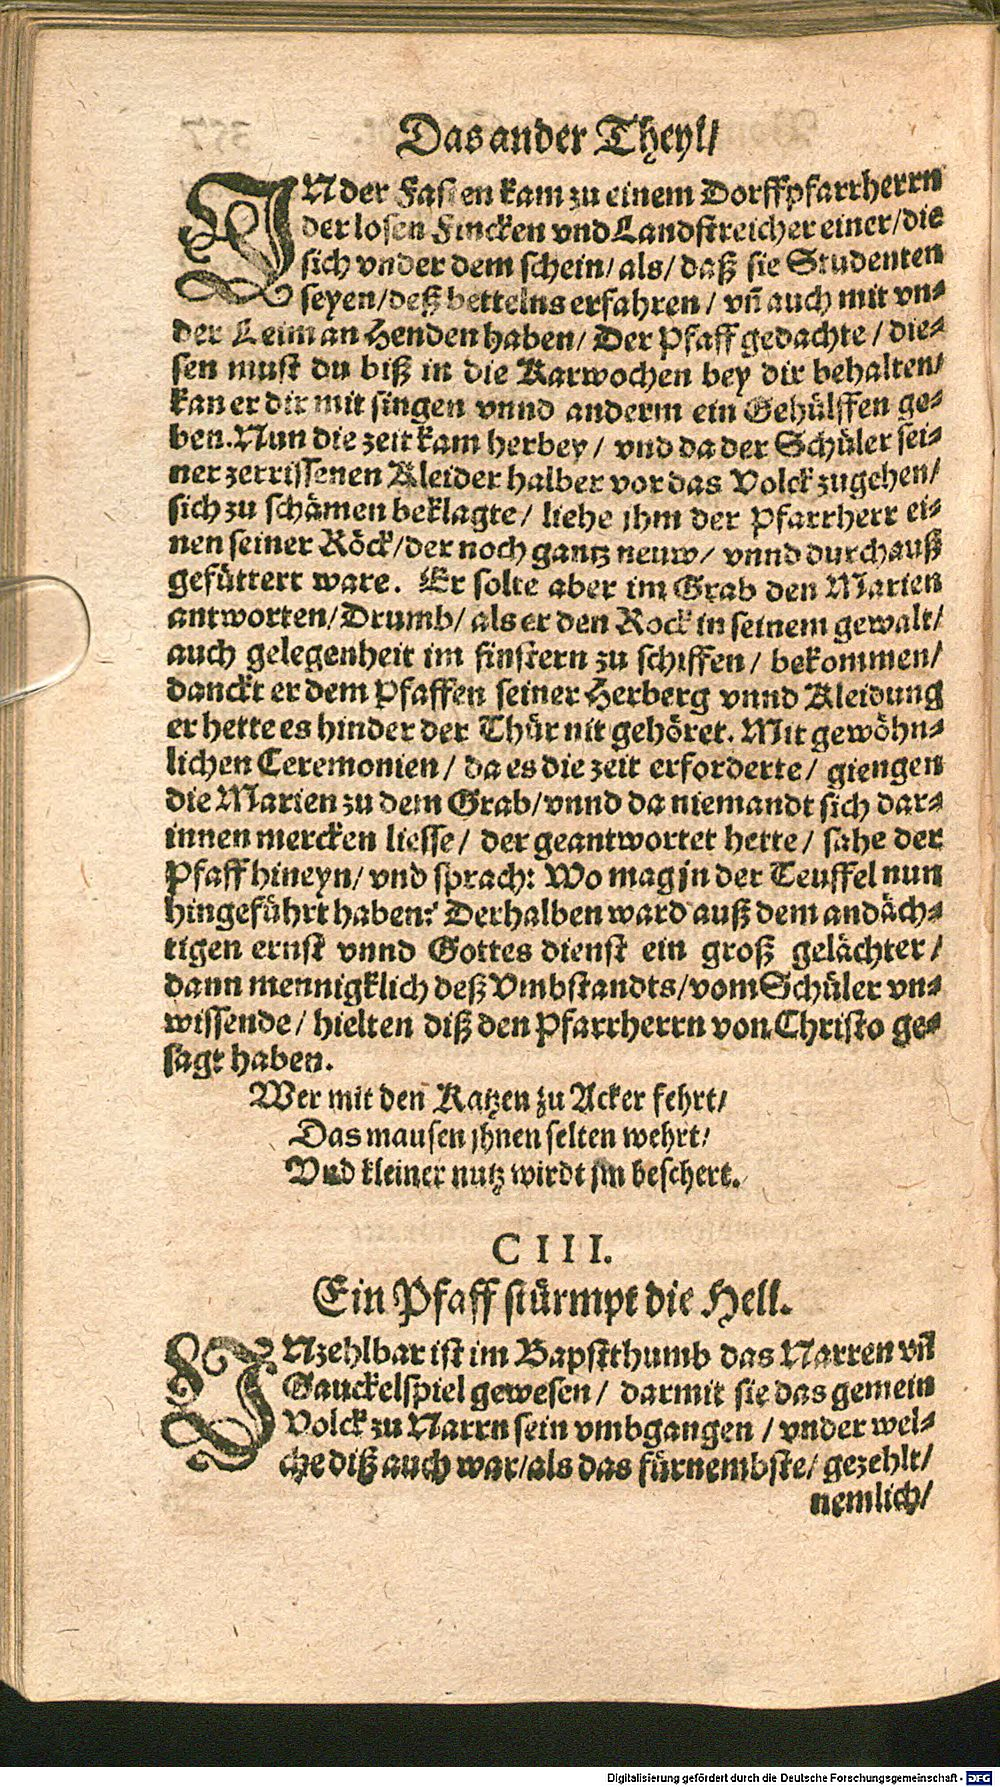 Das ander Theyl/
IN der Fasten kam zu einem Dorffpfarrherrn
der losen Fincken vnd Landstreicher einer/die
sich vnder dem schein/ als/ daß sie Studenten
seyen/deß bettelns erfahren / vñ auch mit vn⸗
der Leim an Henden haben/ Der Pfaff gedachte / die⸗
sen must du biß in die Karwochen bey dir behalten/
kan er dir mit singen vnnd anderm ein Gehülffen ge⸗
ben. Nun die zeit kam herbey / vnd da der Schüler sei⸗
ner zerrissenen Kleider halber vor das Volck zugehen/
sich zu schämen beklagte/ liehe jhm der Pfarrherr ei⸗
nen seiner Röck/der noch gantz neuw/ vnnd durchauß
gefüttert ware. Er solte aber im Grab den Marien
antworten/Drumb/ als er den Rock in seinem gewalt/
auch gelegenheit im finstern zu schiffen / bekommen/
danckt er dem Pfaffen seiner Herberg vnnd Kleidung
er hette es hinder der Thür nit gehöret. Mit gewöhn⸗
lichen Ceremonien / da es die zeit erforderte/ giengen
die Marien zu dem Grab/vnnd da niemandt sich dar⸗
innen mercken liesse / der geantwortet hette / sahe der
Pfaff hineyn/ vnd sprach: Wo mag jn der Teuffel nun
hingeführt haben? Derhalben ward auß dem andäch⸗
tigen ernst vnnd Gottes dienst ein groß gelächter/
dann mennigklich deß Vmbstandts/vom Schüler vn⸗
wissende / hielten diß den Pfarrherrn von Christo ge⸗
sagt haben.
Wer mit den Katzen zu Acker fehrt/
Das mausen jhnen selten wehrt/
Vnd kleiner nutz wirdt jm beschert.
C I I I.
Ein Pfaff stürmpt die Hell.
VNzehlbar ist im Bapstthumb das Narren vñ
Gauckelspiel gewesen / darmit sie das gemein
Volck zu Narrn sein vmbgangen / vnder wel⸗
che diß auch war/als das fürnembste/ gezehlt/
nemlich/
Digitalisierung gefördert durch die Deutsche Forschungsgemeinschaft - DFG